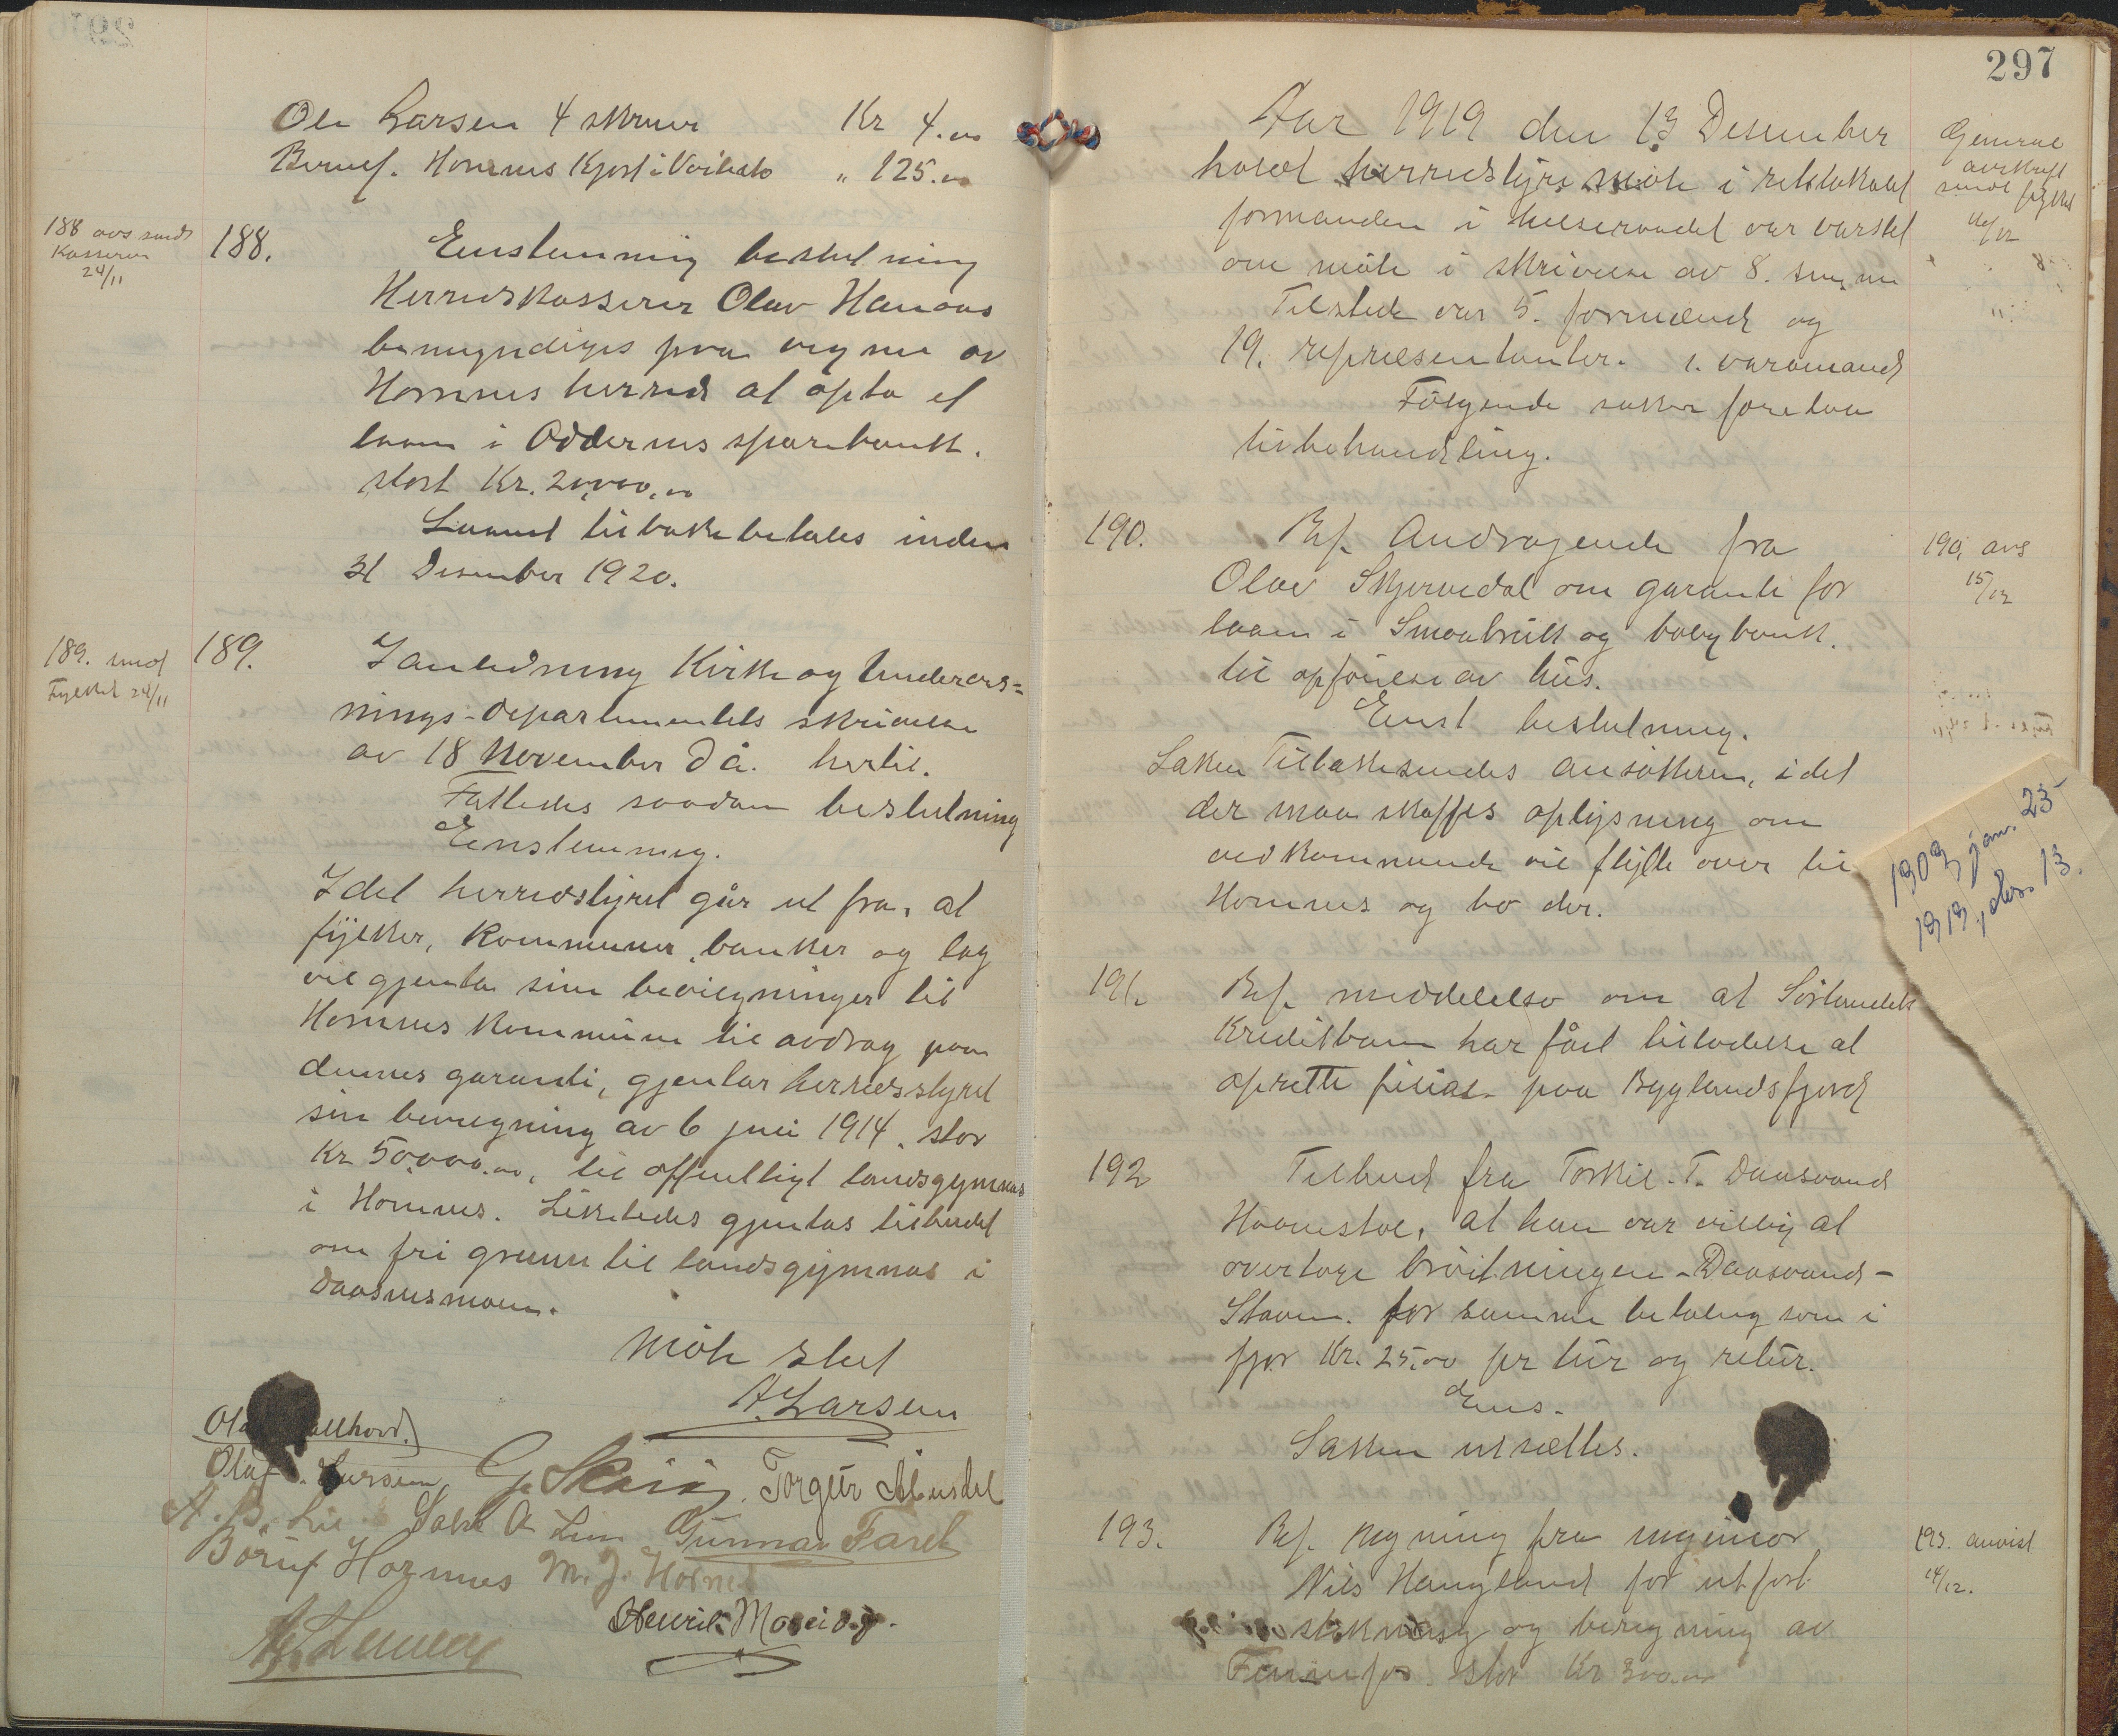 Ole Larsen 4 skruer Kr 4.00
Hornnes Kjost i Voilesto " 125.00
188 avs sendt
Kasserer
24/11
188. Enstemmig beslutning
Herredskasserer Olav Hanaas
bemyndiges paa vegne av
Hornnes herred at opta et
laan i Oddernes sparebank.
stort Kr. 20,000.00
Laanet tilbakebetales inden
31 Desember 1920.
189. send
Fylket 24/11
189. I anledning Kirke og Undervis=
nings-departementets skrivelse
av 18 November d å. hertil.
Fattedes saadan beslutning
Enstemmig.
Idet herredstyret går ut fra, at
fylker, kommuner, banker og lag
vil gjenta sine bevilgninger til
Hornnes kommune til avdrag paa
dennes garanti, gjentar herredsstyret
sin bevilgning av 6 juli 1914. stor
Kr 50,000.00, til offentligt landsgymnas
i Hornnes. Likeledes gjentas tilbudet
om fri grunn til landsgymnas i
Daasnesmoen.
Møte slut
A. Larsen
Olaf
Olaf . Larsen G. Skaiaa. Torgeir Åbusdal
A. B. Lie Salve A Lien Gunnar Faret
Böruf Hornnes M. J. Hornnes
Henrik Moseid.
297
Aar 1919 den 13 Desember
holdt herredstyre møte i
formanden i helseraadet var varslet
om møte i skrivelse av 8. s.m.
Tilstede var 5. formænd og
19. repræsentanter. 1. varamand
Følgende saker foretaes
til behandling.
General
avskrift
sendt fylket
16/12
190. Ref. Andragende fra
Olav Skjervedal om garanti for
laan i Smaabruk og boligbank.
til opførelse av hus.
Enst beslutning.
Saken Tilbakesendes ansøkeren, idet
der maa skaffes oplysning om
vedkommende vil flytte over til
Hornnes og bo der.
190, avs
15/12
1909, jan. 23
1919, des. 13.
191. Ref. meddelelse om at Sørlandets
Kreditbank har fåt tilladelse at
oprette filial paa Byglandsfjord
192 Tilbud fra Torkil. T. Daasvand
at han var villig at
overtage brøitningen - Daasvand -
Staven. for samme betaling som i
fjor Kr. 25.00 pr tur og retur.
Ens.
Saken utsættes.
193. Ref. regning fra ingeniør
Nils Haugland for utført
stikning og beregning av
Fennefos stor Kr 300.00
193. anvist
14/12.